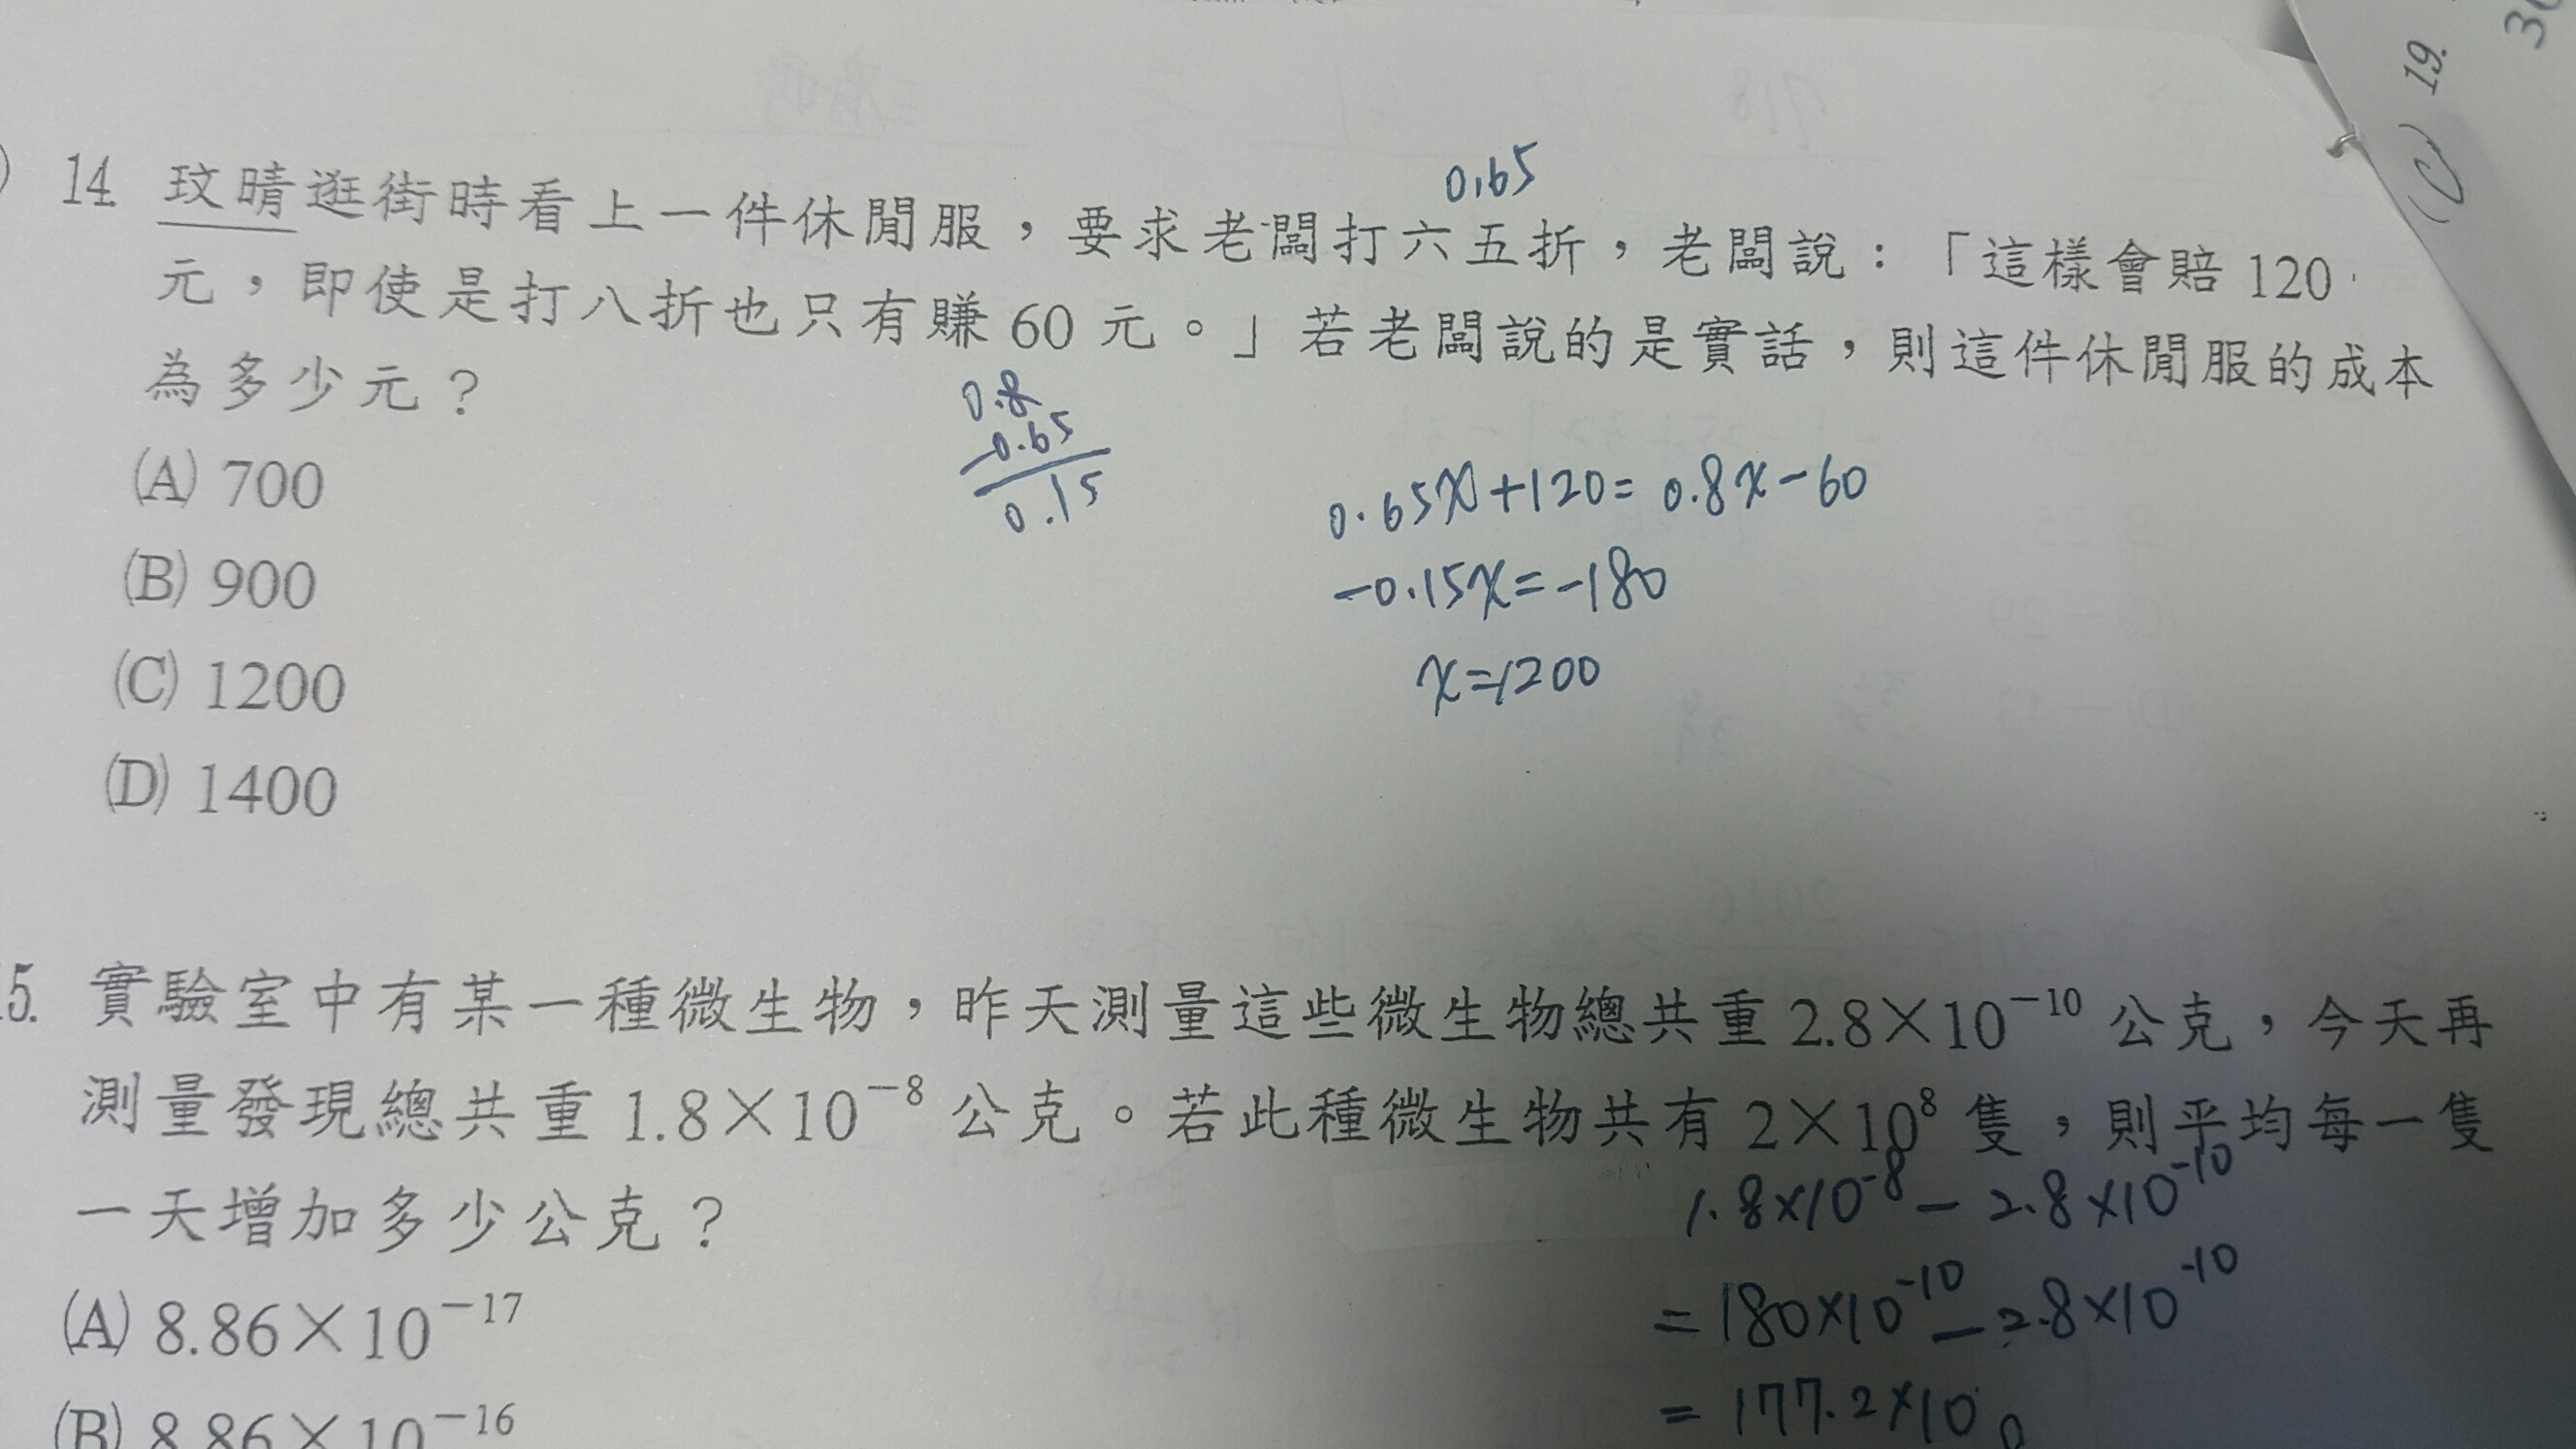 19.
(C)
0.65
14. 玟晴逛街時看上一件休閒服，要求老闆打六五折，老闆說：「這樣會賠 120
元，即使是打八折也只有賺 60 元。」若老闆說的是實話，則這件休閒服的成本
為多少元？
(A) 700
(B) 900
(C) 1200
(D) 1400
0.8
-0.65
0.15
0.65x+120=0.8x-60
-0.15x=-180
x=1200
5. 實驗室中有某一種微生物，昨天測量這些微生物總共重 2.8×10⁻¹⁰ 公克，今天再
測量發現總共重 1.8×10⁻⁸ 公克。若此種微生物共有 2×10⁸ 隻，則平均每一隻
一天增加多少公克？
(A) 8.86×10⁻¹⁷
(B) 8.86×10⁻¹⁶
1.8×10⁻⁸-2.8×10⁻¹⁰
=180×10⁻¹⁰-2.8×10⁻¹⁰
=177.2×10